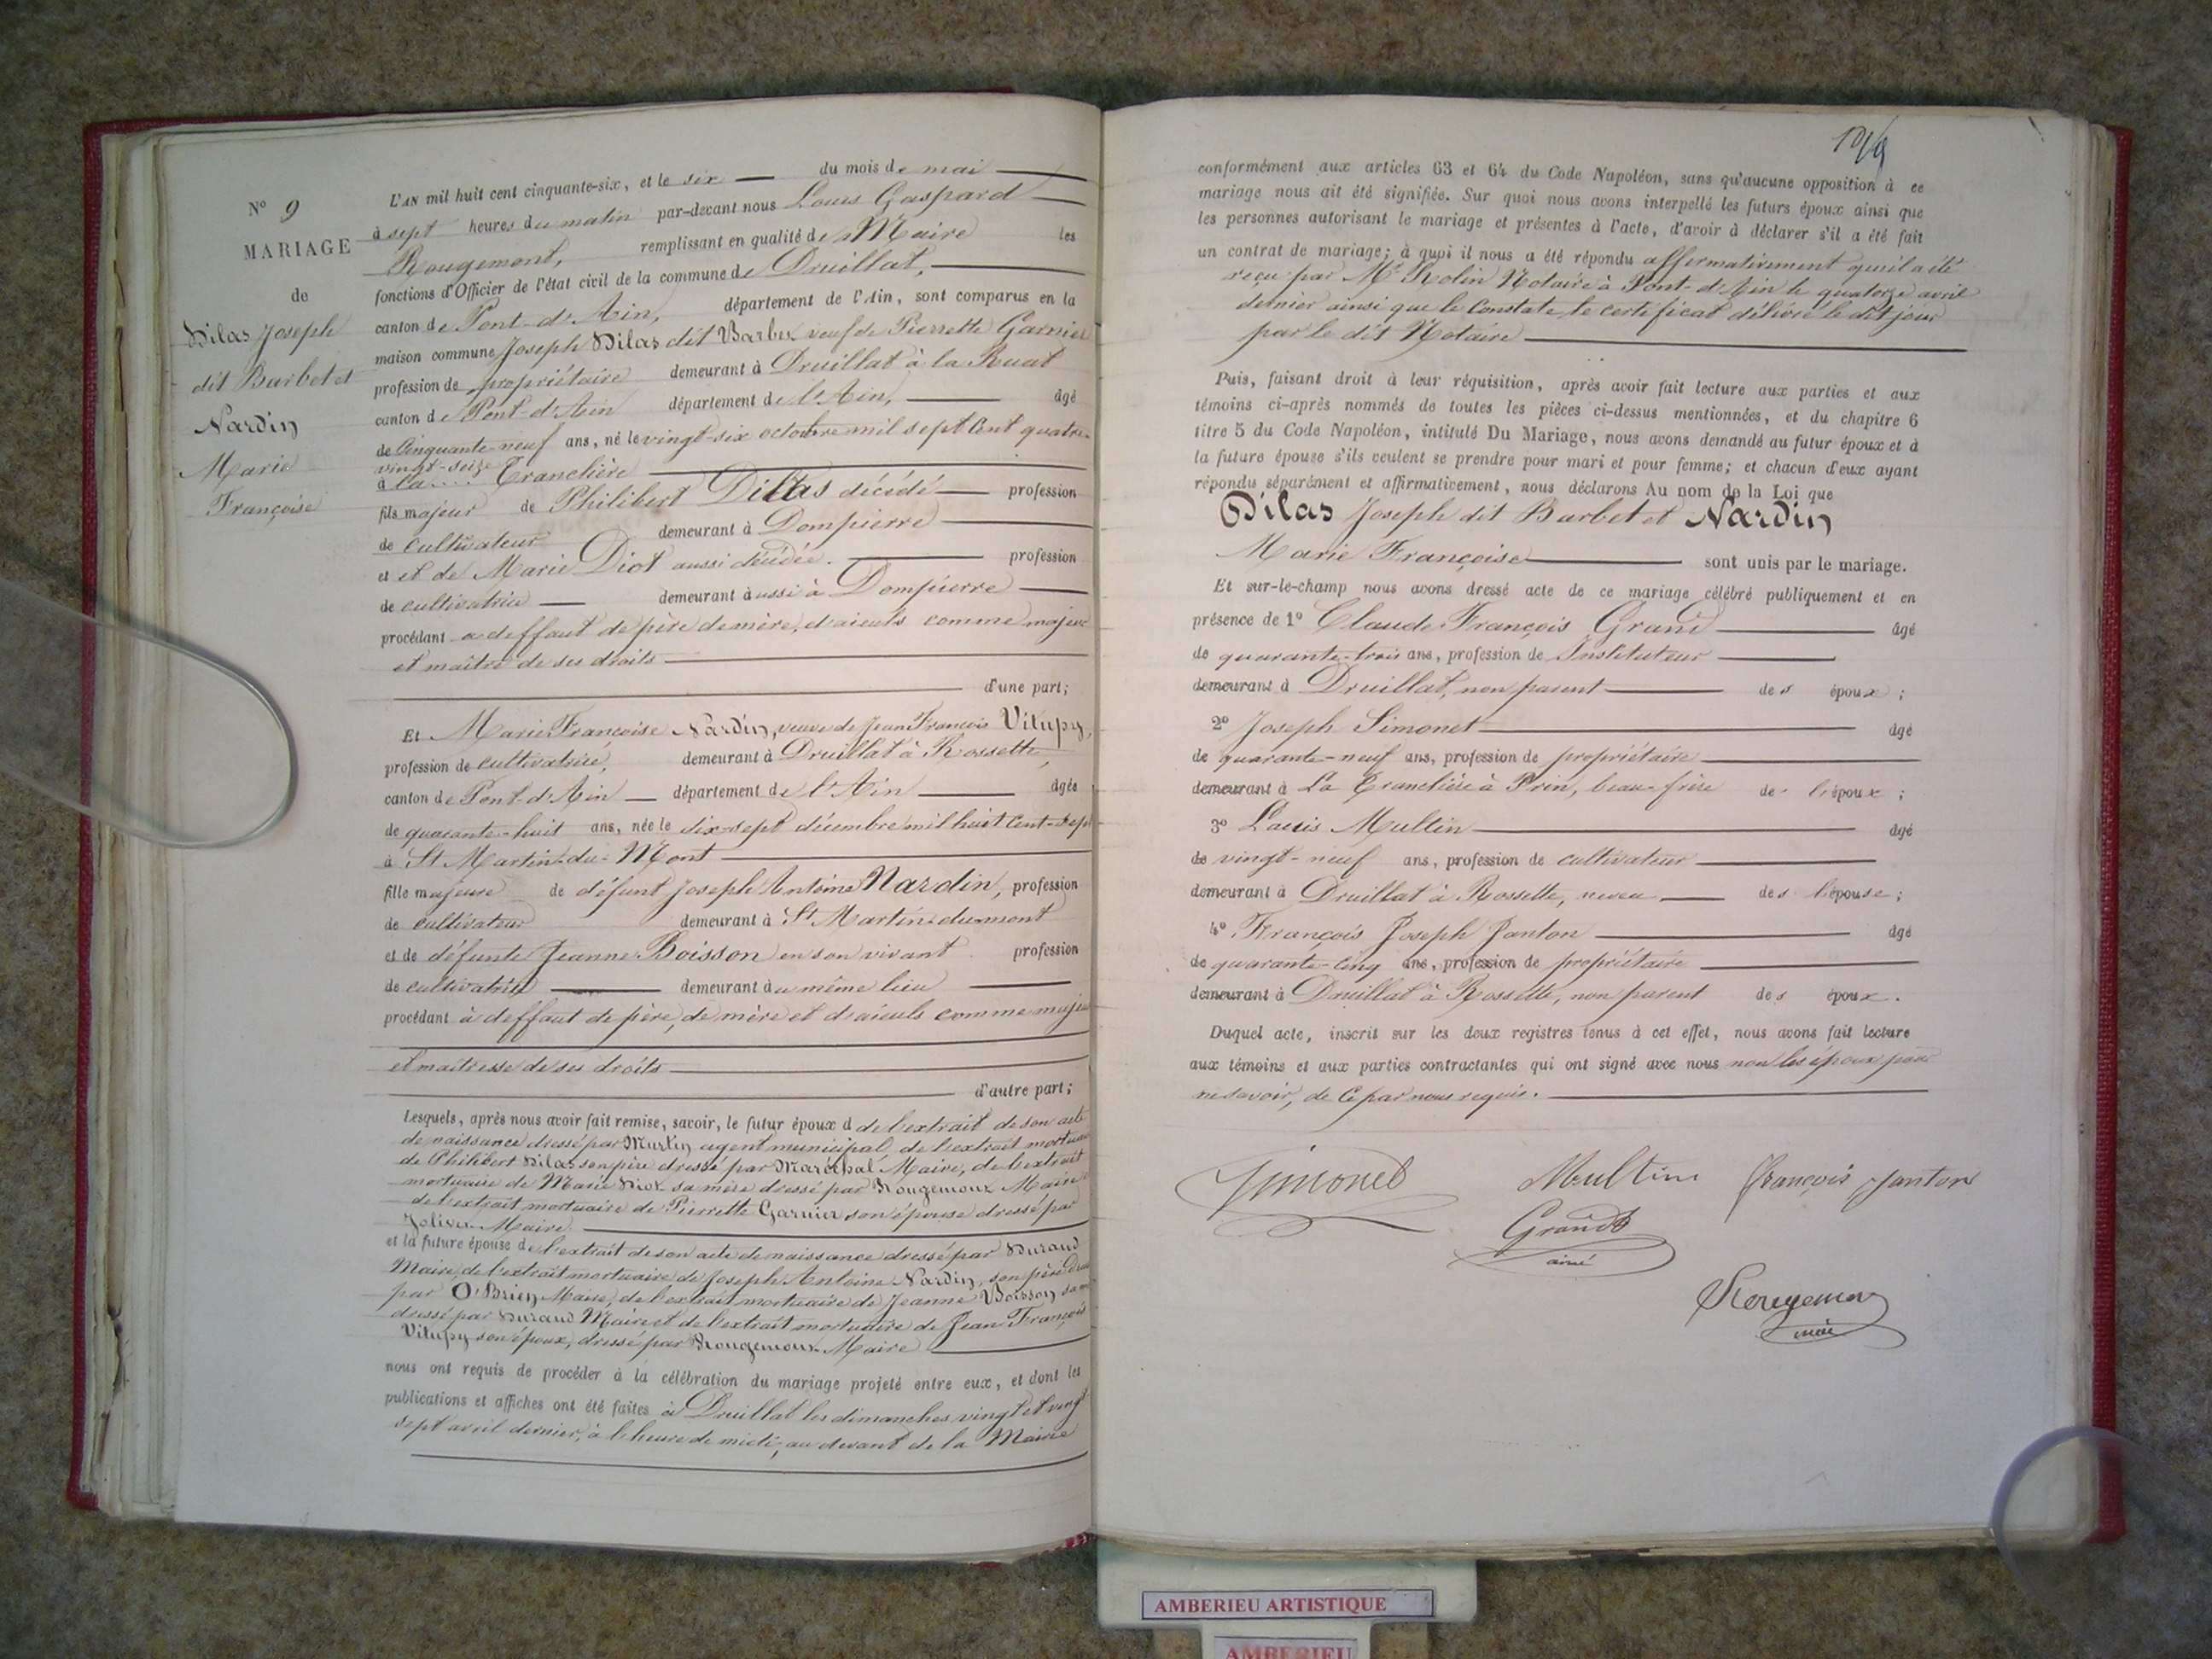 N° 9
MARIAGE
de
Dilas Joseph
dit Barbet et
Nardin
Marie
Françoise
L'AN mil huit cent cinquante-six, et le six du mois de mai
à sept heures du matin par-devant nous Louis Gaspard
Rougemont, remplissant en qualité de Maire les
fonctions d'Officier de l'état civil de la commune de Druillat,
canton de Pont-d'Ain, département de l'Ain, sont comparus en la
maison commune Joseph Dilas dit Barbet veuf de Pierrette Garnier
profession de propriétaire demeurant à Druillat à la Ruat
canton de Pont-d'Ain département de l'Ain, âgé
de Cinquante-neuf ans, né le vingt-six octobre mil sept cent quatre-
vingt-seize
à la Tranclière
fils majeur de Philibert Dilas décédé profession
de cultivateur demeurant à Dompierre
et et de Marie Diot aussi décédée. profession
de cultivatrice demeurant à aussi à Dompierre
procédant a deffaut de père de mère, d'aieuls comme majeur
et maître de ses droits
d'une part;
Et Marie Françoise Nardin, veuve de Jean François Vitupy,
profession de cultivatrice, demeurant à Druillat à Rossette,
canton de Pont-d'Ain département de l'Ain âgée
de quarante-huit ans, née le dix-sept décembre mil huit cent-sept
à St Martin-du-Mont
fille majeure de défunt Joseph Antoine Nardin, profession
de cultivateur demeurant à St Martin-du-mont
et de défunte Jeanne Boisson en son vivant profession
de cultivatrice demeurant au même lieu
procédant à deffaut de père, de mère et d'aieuls comme majeure
et maîtresse de ses droits
d'autre part;
Lesquels, après nous avoir fait remise, savoir, le futur époux d de l'extrait de son acte
de naissance dressé par Martin agent municipal, de l'extrait mortuaire
de Philibert Dilas son père dressé par Maréchal Maire, de l'extrait
mortuaire de Marie Diot sa mère dressé par Rougemont Maire
de l'extrait mortuaire de Pierrette Garnier son épouse dressé par
Jolivet Maire
et la future épouse de l'extrait de son acte de naissance dressé par Durand
Maire, de l'extrait mortuaire de Joseph Antoine Nardin, son père dressé
par O'Brien Maire, de l'extrait mortuaire de Jeanne Boisson sa mère
dressé par Durand Maire et de l'extrait mortuaire de Jean François
Vitupy son époux, dressé par Rougemont Maire
nous ont requis de procéder à la célébration du mariage projeté entre eux, et dont les
publications et affiches ont été faites à Druillat les dimanches vingt et vingt-
sept avril dernier, à l'heure de midi, au devant de la Mairie
conformément aux articles 63 et 64 du Code Napoléon, sans qu'aucune opposition à ce
mariage nous ait été signifiée. Sur quoi nous avons interpellé les futurs époux ainsi que
les personnes autorisant le mariage et présentes à l'acte, d'avoir à déclarer s'il a été fait
un contrat de mariage; à quoi il nous a été répondu affermativement qu'il a été
reçu par Me Rolin Notaire à Pont-d'Ain le quatorze avril
dernier ainsi que le Constate le certificat délivré le dit jour
par le dit Notaire
Puis, faisant droit à leur réquisition, après avoir fait lecture aux parties et aux
témoins ci-après nommés de toutes les pièces ci-dessus mentionnées, et du chapitre 6
titre 5 du Code Napoléon, intitulé Du Mariage, nous avons demandé au futur époux et à
la future épouse s'ils veulent se prendre pour mari et pour femme; et chacun d'eux ayant
répondu séparément et affirmativement, nous déclarons Au nom de la Loi que
Dilas Joseph dit Barbet et Nardin
Marie Françoise sont unis par le mariage.
Et sur-le-champ nous avons dressé acte de ce mariage célébré publiquement et en
présence de 1° Claude François Grand âgé
de quarante-trois ans, profession de Instituteur
demeurant à Druillat, non parent des époux;
2° Joseph Simonet âgé
de quarante-neuf ans, profession de propriétaire
demeurant à La Tranclière à Prin, beau-frère de l'époux;
3° Louis Multin âgé
de vingt-neuf ans, profession de cultivateur
demeurant à Druillat à Rossette, neveu de l'épouse;
4° François Joseph Janton âgé
de quarante-cinq ans, profession de propriétaire
demeurant à Druillat à Rossette, non parent des époux.
Duquel acte, inscrit sur les deux registres tenus à cet effet, nous avons fait lecture
aux témoins et aux parties contractantes qui ont signé avec nous non les époux pour
ne savoir, de ce par nous requis.
Simonet Multin françois Janton
Grand
ainé
Rougemont
maire
AMBERIEU ARTISTIQUE
AMBERIEU